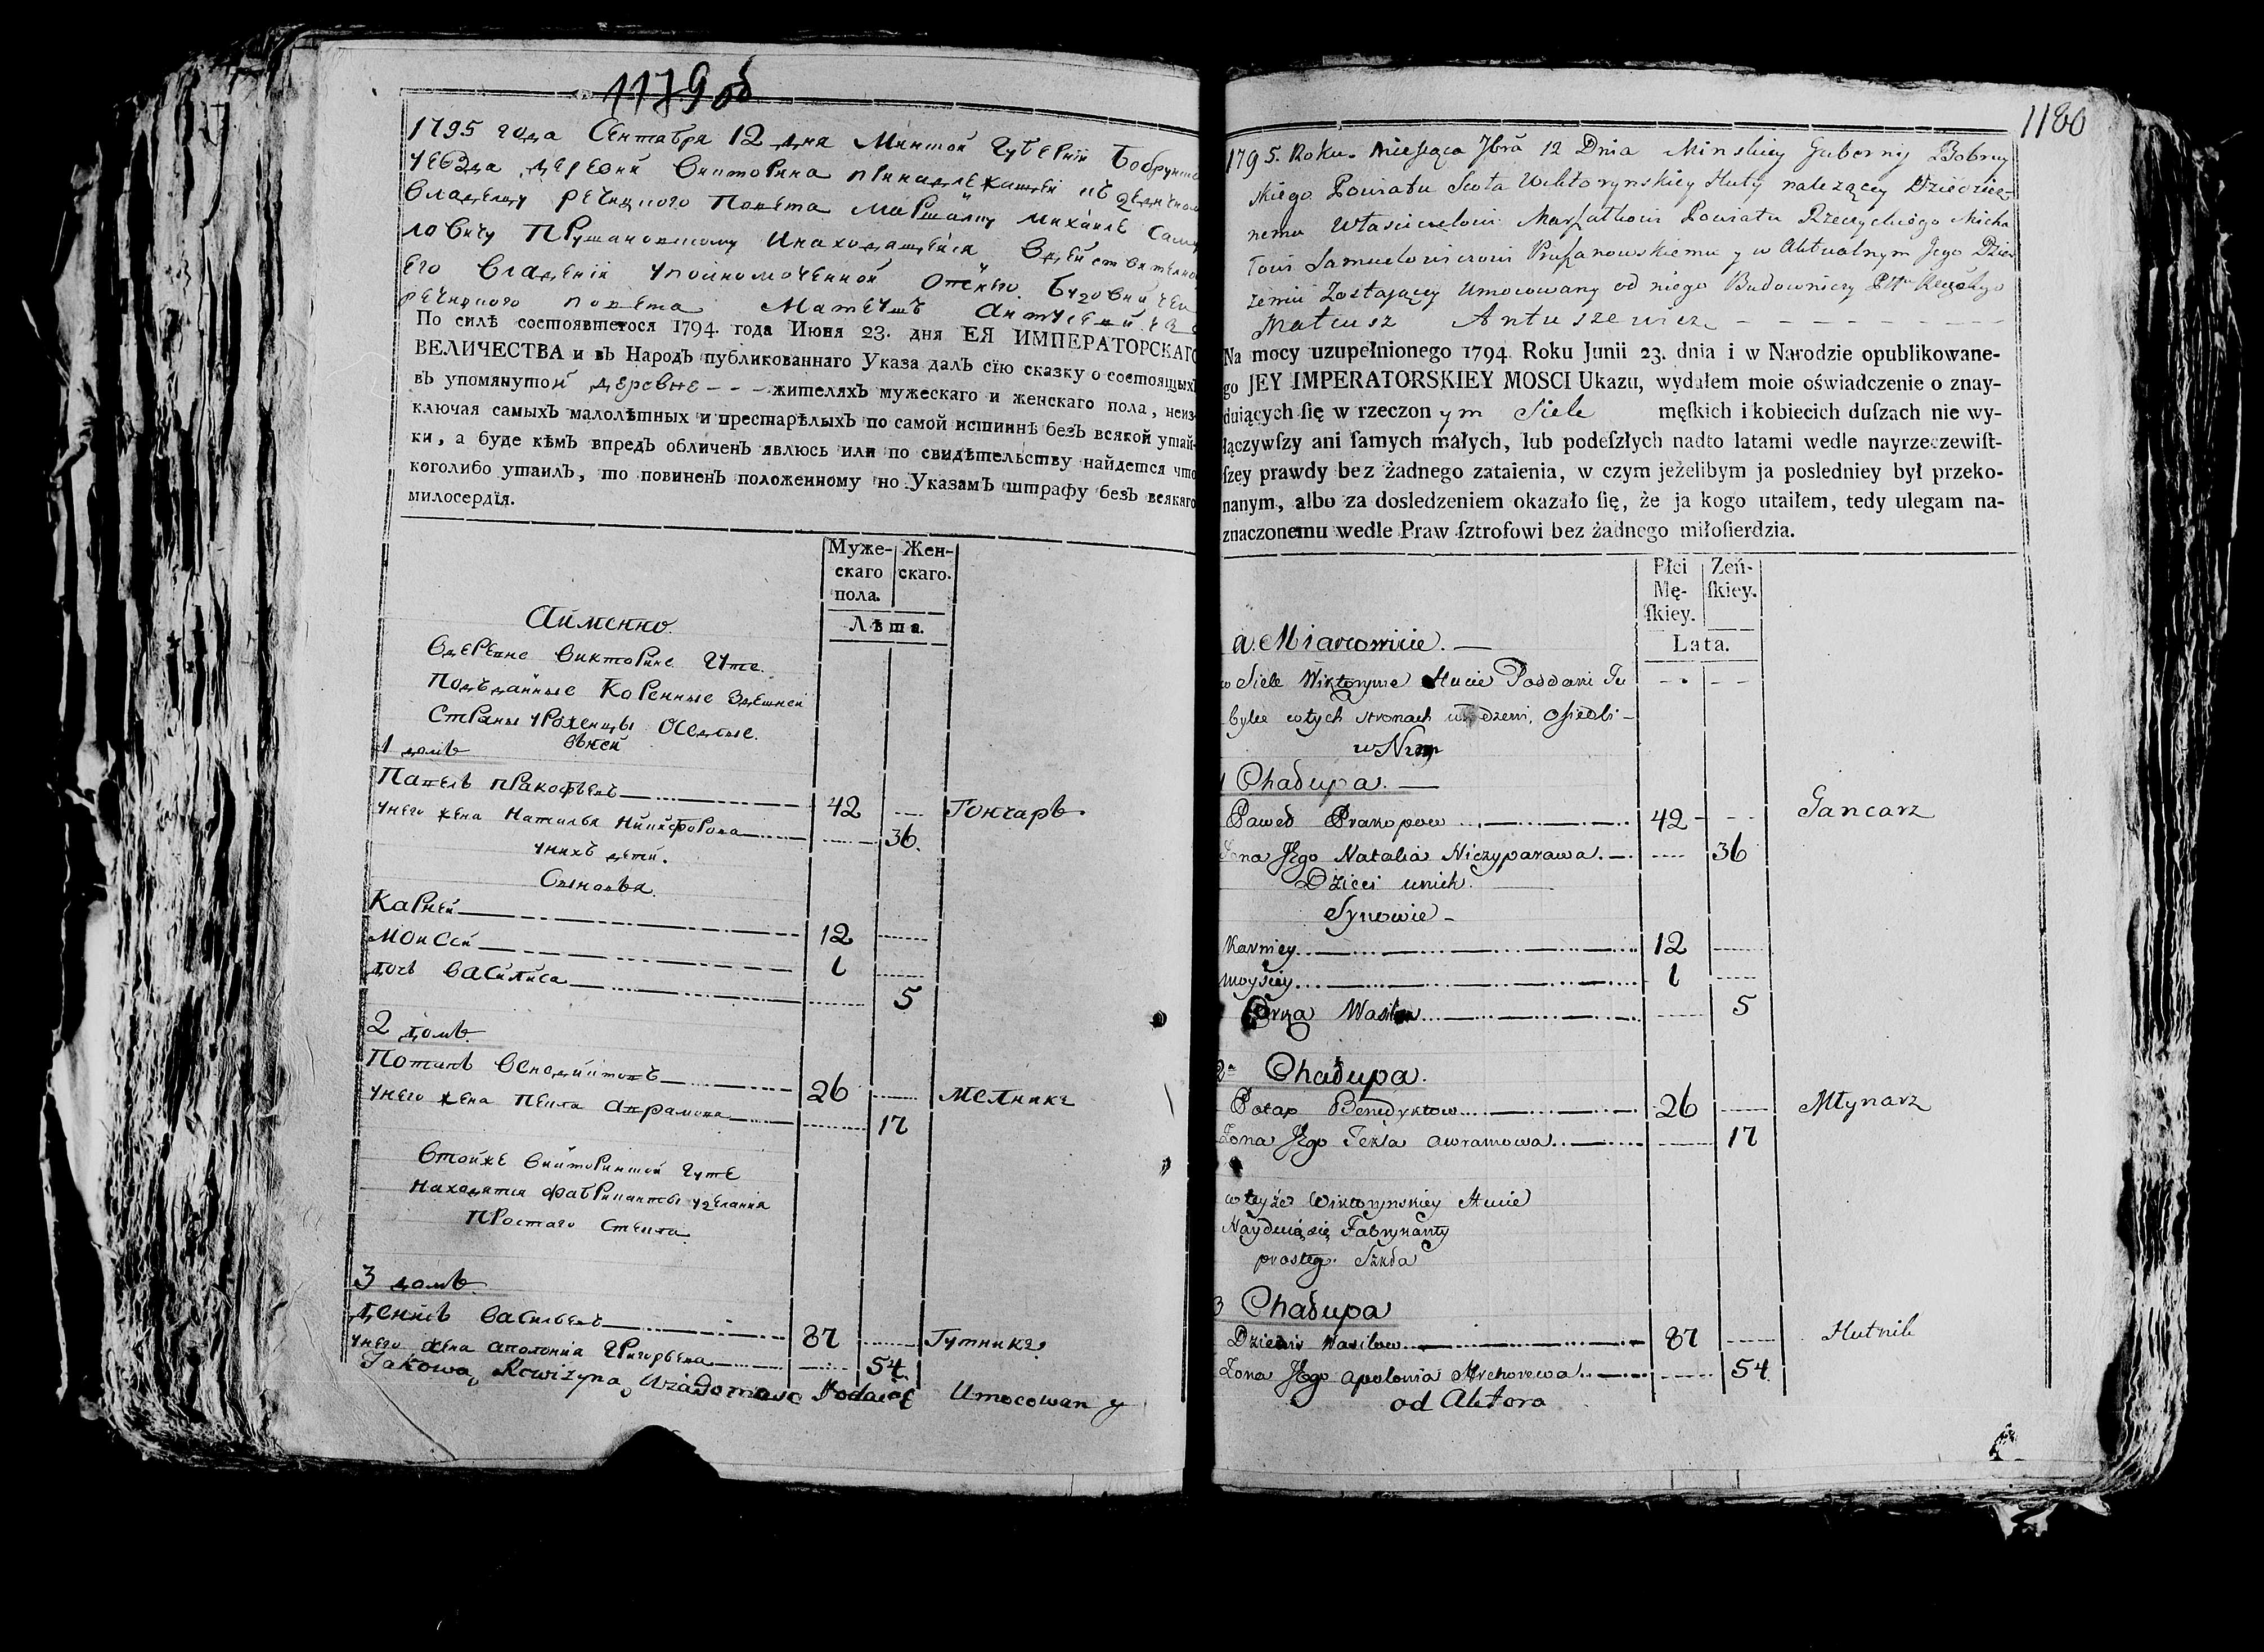 1179 об
1795 года Сентабра 12 дня Минской Губерніи Бобруйско
уезда деревни Викторина принадлежащей
владелцу речицкого повета Маршалку Михаиле Саму
ловичу Прушановскому Инаходящейся вдействително
Его владеніи уполномоченной отнего Будовничей
речицкого повета Матеушъ Антушевичъ
По силѣ состоявшегося 1794. года Июня 23. дня ЕЯ ИМПЕРАТОРСКАГО
ВЕЛИЧЕСТВА и въ НародЪ публикованнаго Указа далЪ сїю сказку о состоящихЪ
въ упомянутой деревне - - - жителяхЪ мужескаго и женскаго пола, неиз-
ключая самыхЪ малолѣтныхъ и престарѣлыхЪ по самой истиннѣ безЪ всякой утай-
ки, а буде кѣмЪ впредЪ обличенЪ явлюсь или по свидѣтельству найдется что
коголибо утаилЪ, то повиненЪ положенному по УказамЪ штрафу безЪ всякаго
милосердїя.
Муже- Жен-
скаго скаго.
пола.
Лѣта.
Аименно.
Вдеревне Викторине Гуте.
Подъданные Коренные Здешней
Страны уроженцы Оседлые.
Вней
1 домъ
Павелъ Пракофьевъ 42 Гончаръ
унего жена Наталья Никифорова 36.
унихъ дети.
Сыновья
Карней 12
Моисей 1
дочь Василиса 5
2 домъ.
Потапъ Венедиктовъ 26 Мелникъ
унего жена Текла Аврамова 17
Втойже Викторинской Гуте
находятся фабриканты уделания
Простаго Стекла.
3 домъ.
Денисъ Васильевъ 87 Гутникъ
унего жена Аполонія Григорьева 54.
Jakową Rewizyną Wiadomosc Podaię Umocowany
1180
1795. Roku. Miesiąca 7bra 12 Dnia Minskiey Gubernij Bobruy
skiego Powiatu Sioła Wiktorynskiey Huty należącey Dziedzicz-
nemu Własicielowi Marszałkowi Powiatu Rzeczyckiego Micha
łowi Samuelowiczowi Pruszanowskiemu y w Aktualnym Jego Dzier
żeniu Zostającey Umocowany od niego Budowniczy Ptu Rzeczkgo
Mateusz Antuszewicz - - - - - - - -
Na mocy uzupełnionego 1794. Roku Junii 23. dnia i w Narodzie opublikowane-
go JEY IMPERATORSKIEY MOSCI Ukazu, wydałem moie oświadczenie o znay-
duiących ſię w rzeczonym Siele męſkich i kobiecich duſzach nie wy-
łączywſzy ani ſamych małych, lub podeſzłych nadto latami wedle nayrzeczewiſt-
ſzey prawdy bez żadnego zataienia, w czym jeżelibym ja posledniey był przeko-
nanym, albo za dosledzeniem okazało ſię, że ja kogo utaiłem, tedy ulegam na-
znaczonemu wedle Praw ſztrofowi bez żadnego miłoſierdzia.
Płci Zeń-
Mę- ſkiey.
ſkiey.
Lata.
a Mianowicie. —
w Siele Wiktorynie Hucie Poddani Tu
bylce wtych stronach urodzeni, Osiedli -
w Niey
1 Chałupa. —
Paweł Prakopow 42 Gancarz
Żona Jego Natalia Niczyparawa. 36
Dzieci unich.
Synowie -
Karniey 12
Moysiey 1
Corka Wasilisa 5
2a Chałupa.
Potap Benedyktow 26 Młynarz
Żona Jego Tekla Awramowa 17
w teyże Wiktorynskiey Hucie
Nayduią się Fabrykanty
prosteg. Szkła
3 Chałupa
Dzienis Wasilew 87 Hutnik
Żona Jego Apolonia Hrehorewa 54.
od Aktora